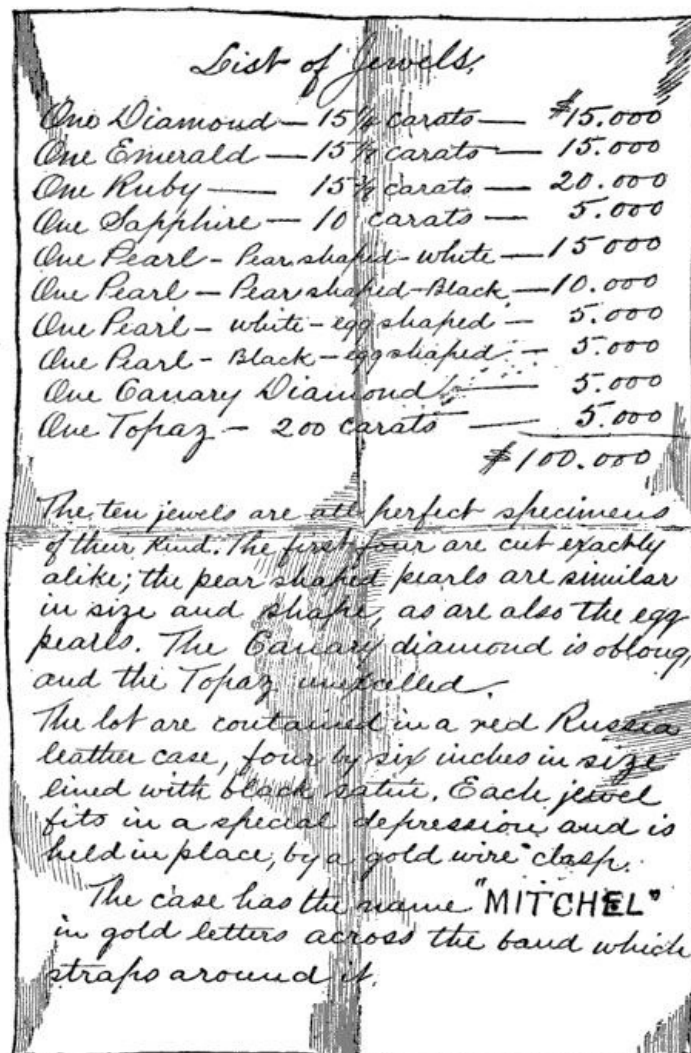 List of Jewels.
One Diamond — 15 1/4 carats — $15.000
One Emerald — 15 7/8 carats — 15.000
One Ruby — 15 3/4 carats — 20.000
One Sapphire — 10 carats — 5.000
One Pearl - Pear shaped - white — 15000
One Pearl — Pear shaped - Black — 10.000
One Pearl — white - egg shaped — 5.000
One Pearl - Black — egg shaped — 5.000
One Canary Diamond — 5.000
One Topaz — 200 carats — 5.000
$100.000
The ten jewels are all perfect specimens
of their kind. The first four are cut exactly
alike; the pear shaped pearls are similar
in size and shape, as are also the egg
pearls. The Canary diamond is oblong,
and the Topaz unexcelled.
The lot are contained in a red Russia
leather case, four by six inches in size
lined with black satin. Each jewel
fits in a special depression and is
held in place, by a gold wire clasp.
The case has the name "MITCHEL"
in gold letters across the band which
straps around it.